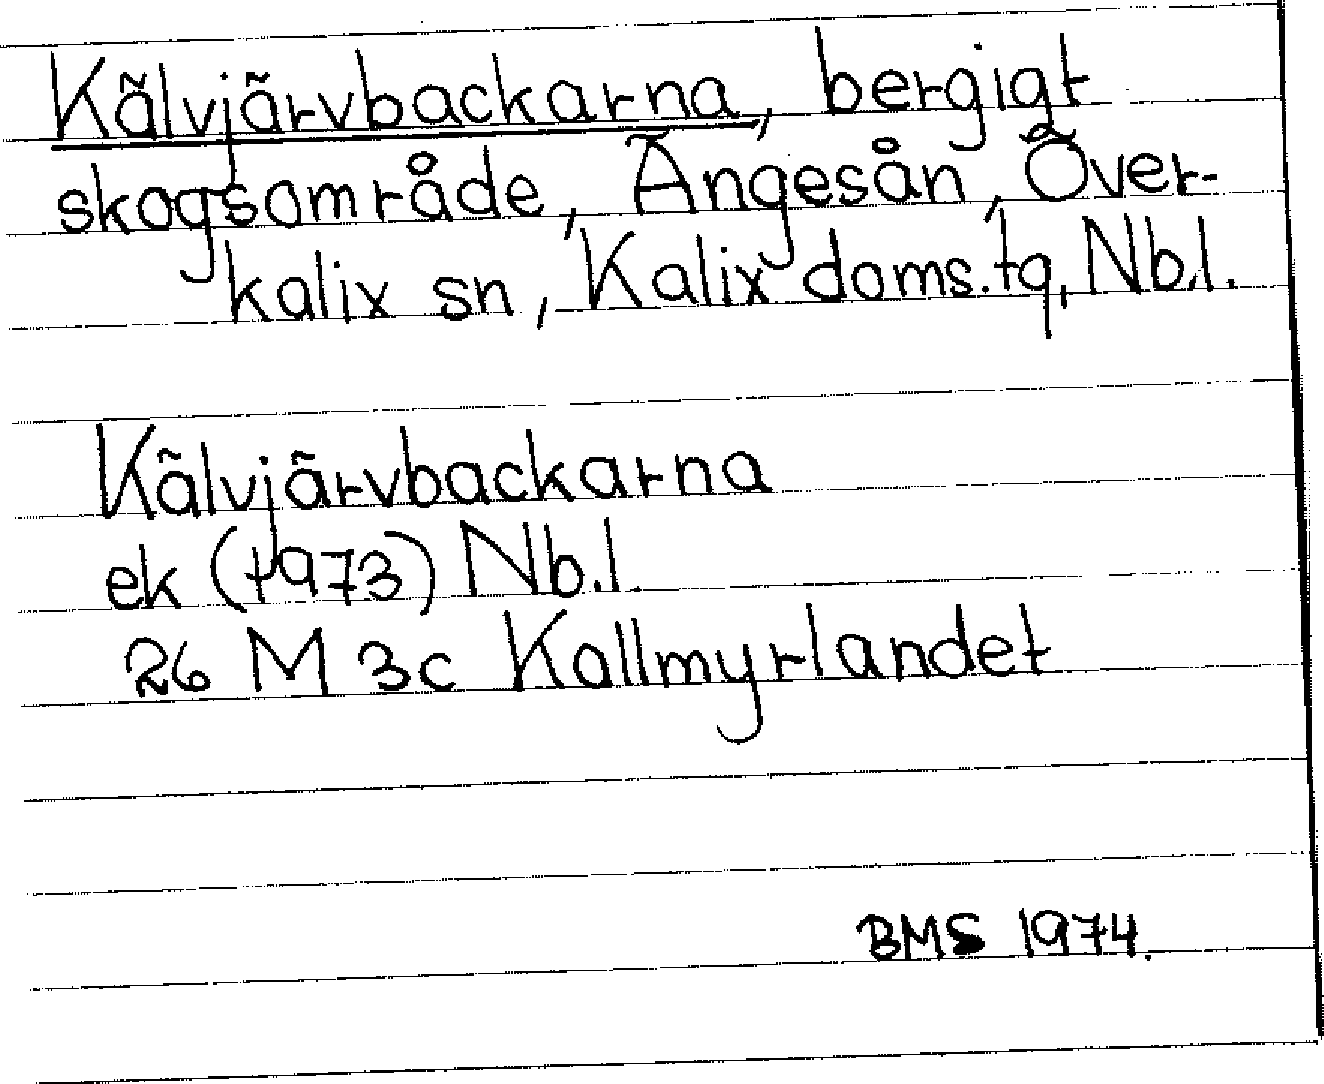 Kälvjärvbackarna, bergigt
skogsområde, Ängesån, Över-
kalix sn, Kalix doms.tg, Nb.l.
Kälvjärvbackarna
ek (1973) Nb.l.
26 M 3c Kallmyrlandet
BMS 1974.